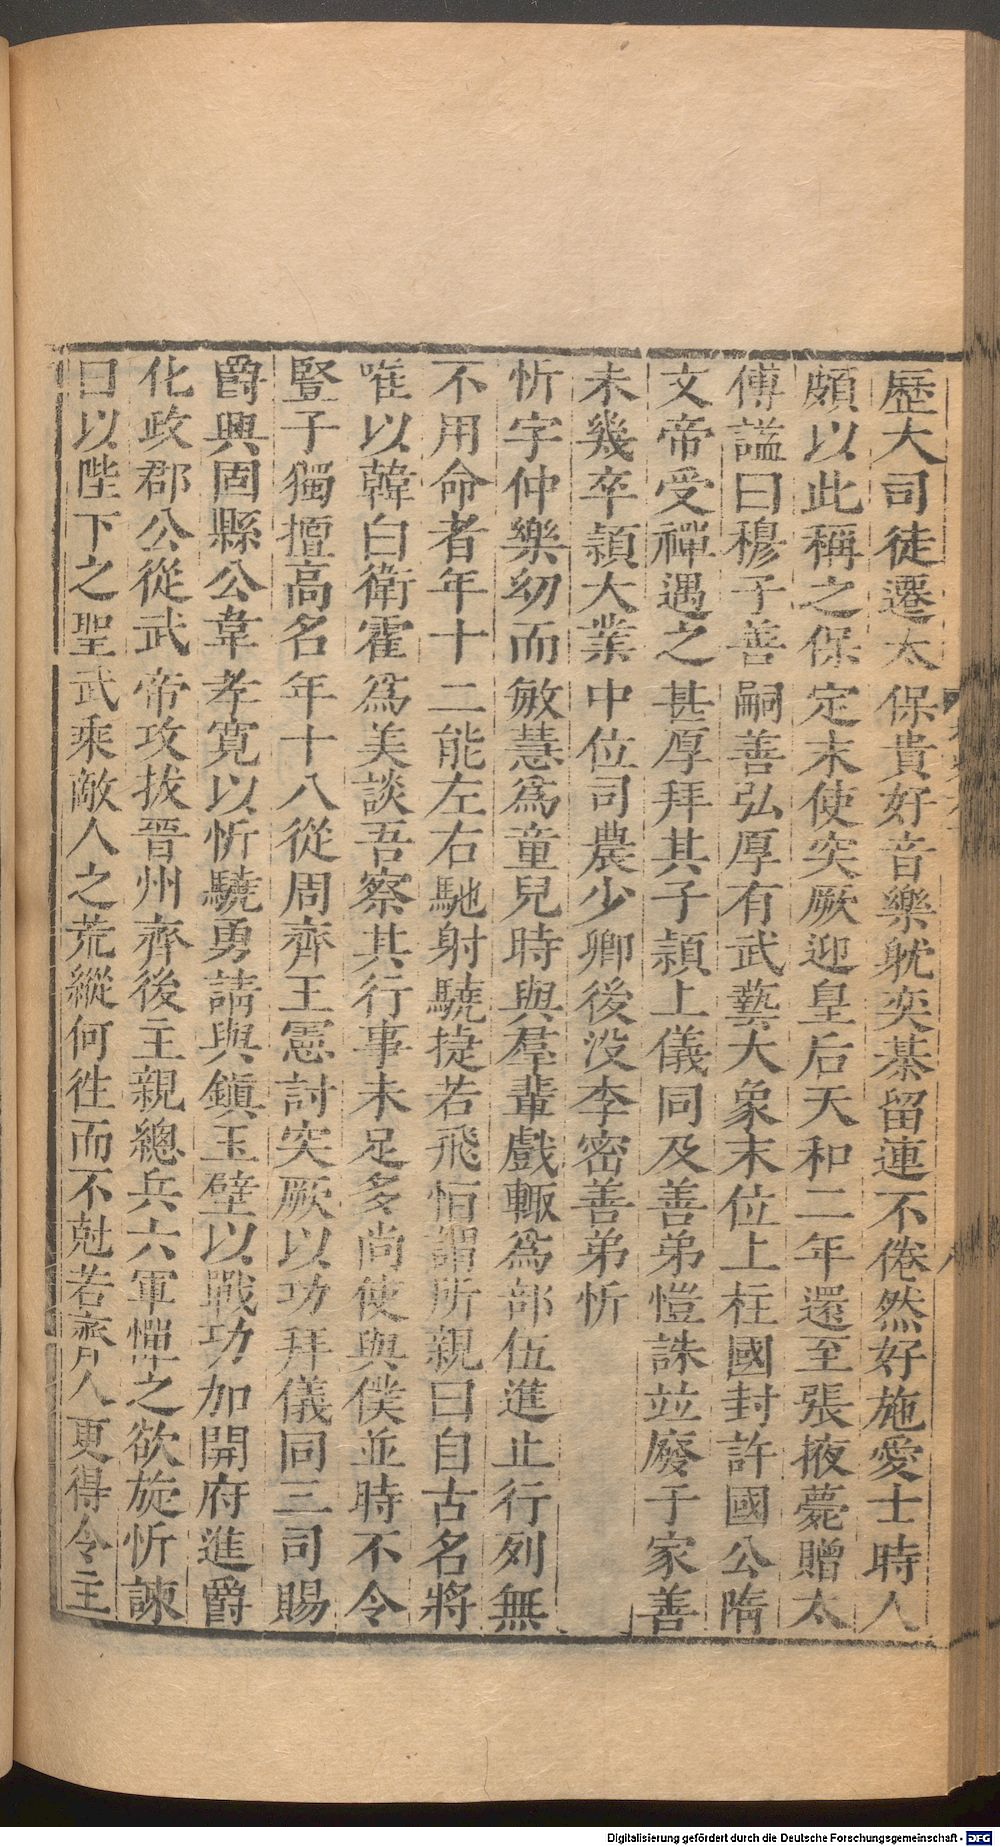 歷大司徒遷太保貴好音樂躭奕棊留連不倦然好施愛士時人
頗以此稱之保定末使突厥迎皇后天和二年還至張掖薨贈太
傅謚曰穆子善嗣善弘厚有武藝大象末位上柱國封許國公隋
文帝受禪遇之甚厚拜其子頴上儀同及善弟愷誅並廢于家善
未幾卒頴大業中位司農少卿後没李密善弟忻
忻字仲樂幼而敏慧爲童兒時與羣輩戲輙爲部伍進止行列無
不用命者年十二能左右馳射驍捷若飛恒謂所親曰自古名將
唯以韓白衛霍爲美談吾察其行事未足多尚使與僕並時不令
豎子獨擅高名年十八從周齊王憲討突厥以功拜儀同三司賜
爵興固縣公韋孝寛以忻驍勇請與鎭玉壁以戰功加開府進爵
化政郡公從武帝攻拔晉州齊後主親總兵六軍憚之欲旋忻諫
曰以陛下之聖武乘敵人之荒縱何徃而不尅若齊人更得令主
Digitalisierung gefördert durch die Deutsche Forschungsgemeinschaft - DFG